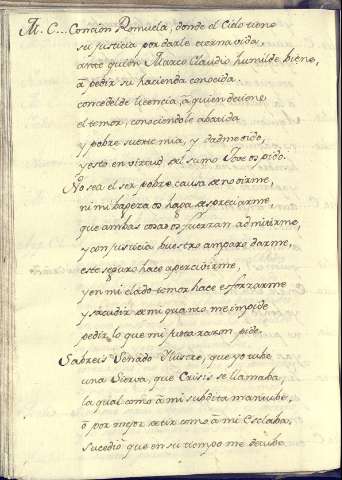 M. C... Concion Romulea, donde el Cielo tiene
su justicia por darle eterna vida,
ante quien Marco Claudio humilde biene,
a pedir su hacienda conocida:
concedelde licencia, a quien detiene
el temor, conociendole abatida
y pobre suerte mia, y dadme oido,
y esto en virtud del sumo Jove os pido.
No sea el ser pobre causa de no oirme,
ni mi bajeza os haga despreciarme,
que ambas cosas os fuerzan admitirme,
y con justicia buestro amparo darme,
este seguro hace apercivirme,
y en mi elado temor hace esforzarme
y sacudir de mi quanto me impide
pedir lo que mi justa razon pide.
Sabreis Senado Ilustre, que yo tube
una Sierva, que Crisis se llamaba,
la qual como á mi subdita mantube,
ó por mejor decir como á mi Esclaba,
sucedió que en su tiempo me detube